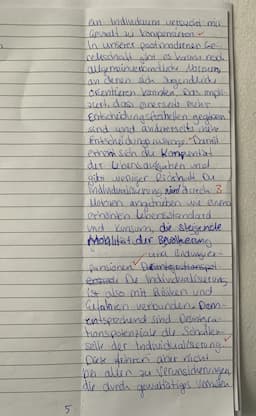 ein Individuum versucht mit
Gewalt zu kompensieren
In unserer postmodernen Ge-
sellschaft gibt es kaum noch
allgemeinverbindliche Normen,
an denen sich Jugendliche
orientieren können. Das impli-
ziert, dass einerseits mehr
Entscheidungsfreiheiten gegeben
sind und andererseits mehr
Entscheidungszwänge. Damit
erhöht sich die Komplexität
der Lebensaufgaben und
gibt weniger Rückhalt. Die
Individualisierung wird durch
Motoren angetrieben wie einem
erhöhten Lebensstandard
und Konsum, die steigende
Mobilität der Bevölkerung
und Bildungsex-
pansionen. Die Individualisierung
ist also mit Risiken und
Gefahren verbunden. Dem-
entsprechend sind Desinte-
grationspotenziale die Schatten-
seite der Individualisierung.
Diese führen aber nicht
bei allen zu Verunsicherungen
die durch gewalttätiges
5